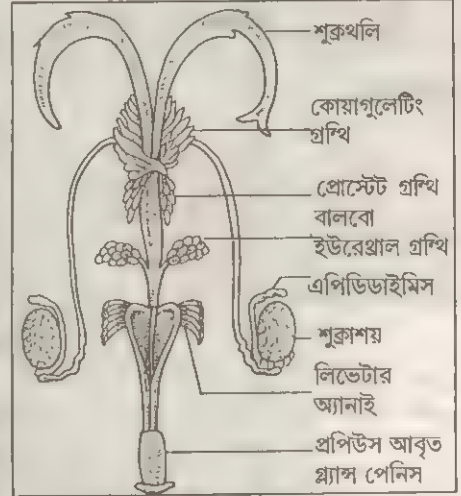 শুক্রথলি
কোয়াগুলেটিং
গ্রন্থি
প্রোস্টেট গ্রন্থি
বালবো
ইউরেথ্রাল গ্রন্থি
এপিডিডাইমিস
শুক্রাশয়
লিভেটার
অ্যানাই
প্রপিউস আবৃত
গ্ল্যান্স পেনিস